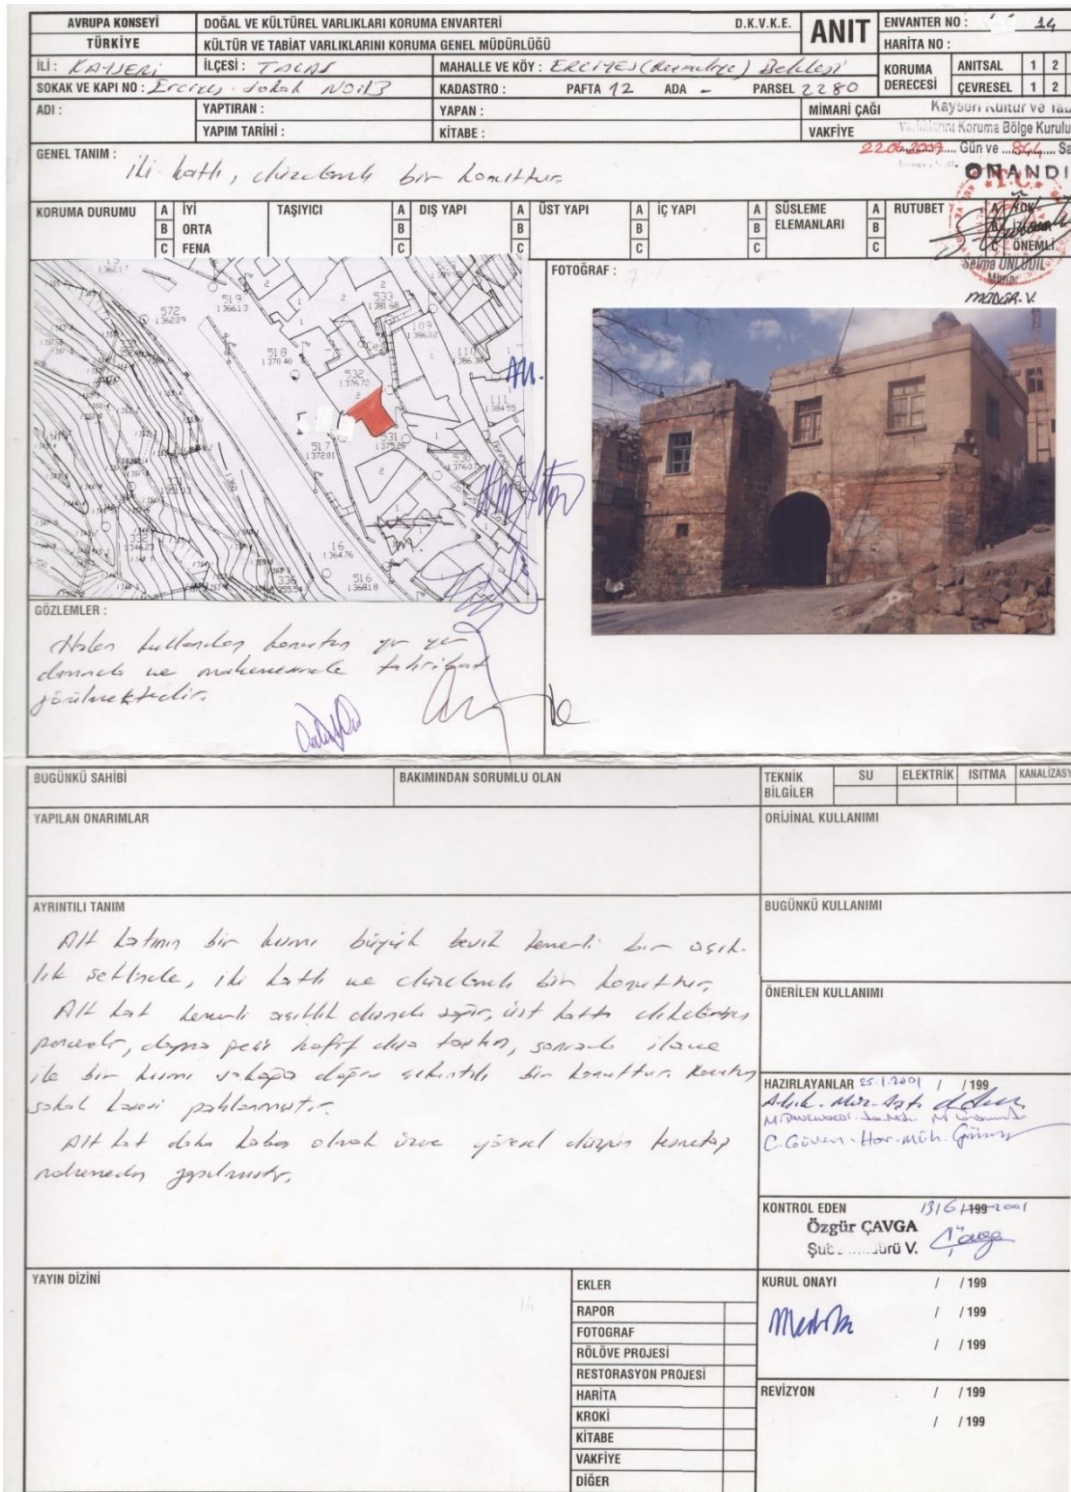 AVRUPA KONSEYİ
TÜRKİYE
DOĞAL VE KÜLTÜREL VARLIKLARI KORUMA ENVARTERİ D.K.V.K.E.
KÜLTÜR VE TABİAT VARLIKLARINI KORUMA GENEL MÜDÜRLÜĞÜ
ANIT
ENVANTER NO : 14
HARİTA NO :
İLİ : KAYSERİ İLÇESİ : TALAS MAHALLE VE KÖY : ERCİYES (Reşadiye) Beldesi
SOKAK VE KAPI NO : Erciyes Sokak No:13 KADASTRO : PAFTA 12 ADA - PARSEL 2280
KORUMA DERECESİ ANITSAL 1 2
ÇEVRESEL 1 2
ADI : YAPTIRAN : YAPAN : MİMARİ ÇAĞI
YAPIM TARİHİ : KİTABE : VAKFİYE
Kayseri Kültür ve Tab
Varlıklarını Koruma Bölge Kurulu
22.06.2007 Gün ve 844 Sa
ONANDI
GENEL TANIM :
İki katlı, düzdamlı bir konuttur.
KORUMA DURUMU A İYİ TAŞIYICI A DIŞ YAPI A ÜST YAPI A İÇ YAPI A SÜSLEME ELEMANLARI A RUTUBET A YOK
B ORTA B B B B B
C FENA C C C C C C ÖNEMLİ
Selma ÜNLÜDİL
Mimar
MÜDÜR.V.
FOTOĞRAF :
572
519
518
533
109
110
111
532
1376.72
531
517
1372.01
530
16
1364.76
516
1368.18
GÖZLEMLER :
Halen kullanılan konutun yer yer
damında ve malzemesinde tahribat
görülmektedir.
BUGÜNKÜ SAHİBİ BAKIMINDAN SORUMLU OLAN TEKNİK BİLGİLER SU ELEKTRİK ISITMA KANALİZASY
YAPILAN ONARIMLAR
ORİJİNAL KULLANIMI
AYRINTILI TANIM
Alt katının bir kısmı büyük basık kemerli bir açık-
lık şeklinde, iki katlı ve düzdamlı bir konuttur.
Alt kat kemerli açıklık dışında sağır, üst katta dikdörtgen
pencereler, hafif dışa taşkın, sonradan ilave
ile bir kısmı sokağa doğru çıkıntılı bir konuttur. Konutun
sokak köşesi pahlanmıştır.
Alt kat daha kaba olmak üzere yöresel düzgün kesmetaş
malzemeden yapılmıştır.
BUGÜNKÜ KULLANIMI
ÖNERİLEN KULLANIMI
HAZIRLAYANLAR 25.1.2001 / /199
C. Güven - Har. Müh.
KONTROL EDEN 13/6/199 2001
Özgür ÇAVGA
Şube Müdürü V.
YAYIN DİZİNİ
EKLER
RAPOR
FOTOGRAF
RÖLÖVE PROJESİ
RESTORASYON PROJESİ
HARİTA
KROKİ
KİTABE
VAKFİYE
DİĞER
KURUL ONAYI / /199
/ /199
/ /199
REVİZYON / /199
/ /199